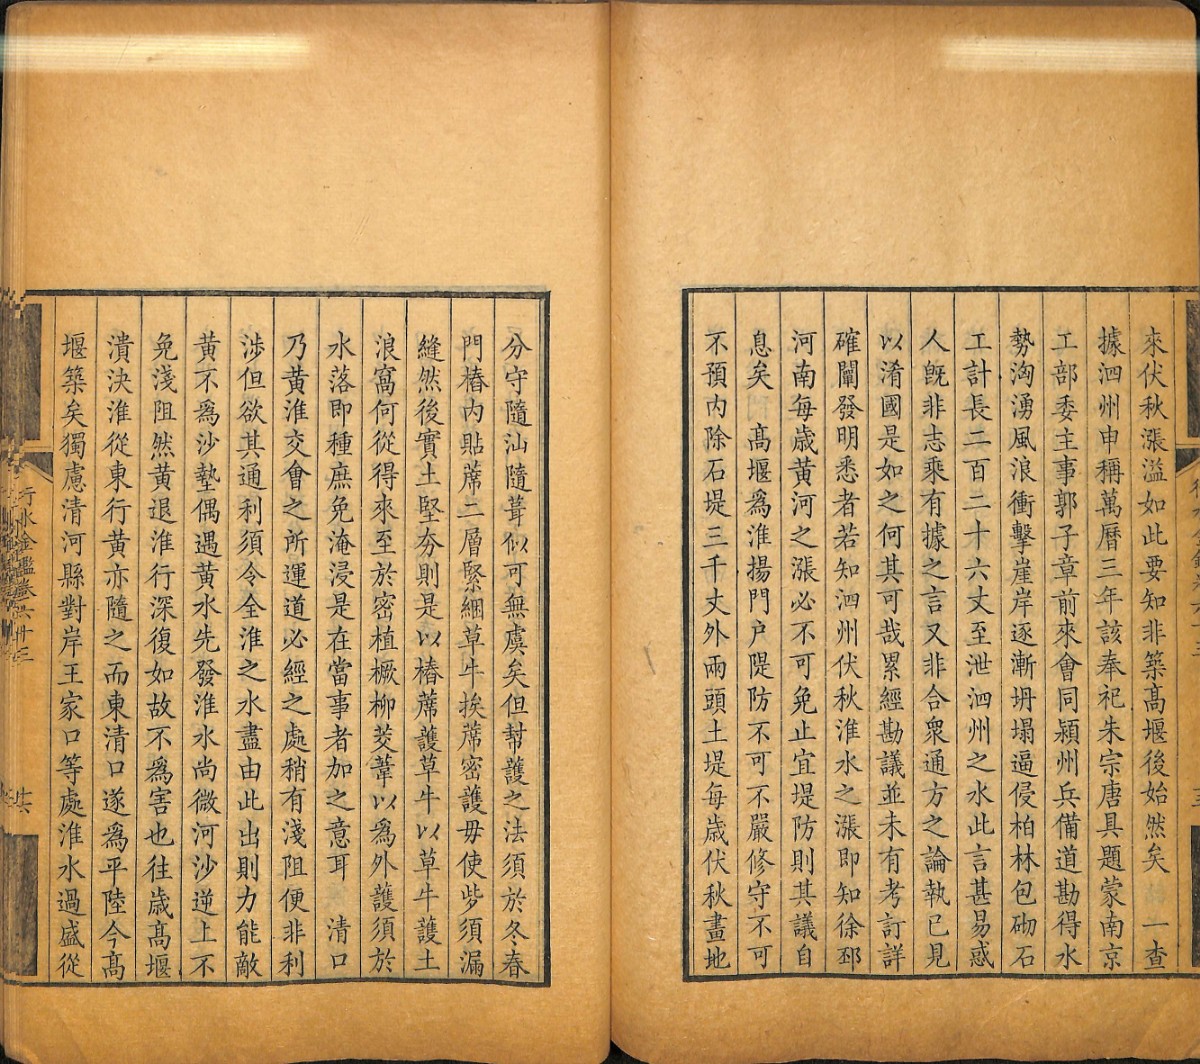 來伏秋漲溢如此要知非築髙堰後始然矣　一查
據泗州申稱萬曆三年該奉祀朱宗唐具題蒙南京
工部委主事郭子章前來會同潁州兵備道勘得水
勢洶湧風浪衝擊崖岸逐漸坍塌逼侵柏林包砌石
工計長二百二十六丈至泄泗州之水此言甚易惑
人旣非志乘有據之言又非合衆通方之論執已見
以淆國是如之何其可哉累經勘議並未有考訂詳
確闡發明悉者若知泗州伏秋淮水之漲即知徐邳
河南每歲黄河之漲必不可免止宜堤防則其議自
息矣　髙堰爲淮揚門户隄防不可不嚴修守不可
不預内除石堤三千丈外兩頭土堤每歲伏秋畫地
分守隨汕隨葺似可無虞矣但幇護之法須於冬春
門樁内貼蓆二層緊綑草牛挨蓆密護毋使些須漏
縫然後實土堅夯則是以樁蓆護草牛以草牛護土
浪窩何從得來至於密植橛柳茭葦以爲外護須於
水落即種庶免淹浸是在當事者加之意耳　清口
乃黄淮交會之所運道必經之處稍有淺阻便非利
涉但欲其通利須令全淮之水盡由此出則力能敵
黄不爲沙墊偶遇黄水先發淮水尚微河沙逆上不
免淺阻然黄退淮行深復如故不爲害也往歲髙堰
潰決淮從東行黄亦隨之而東清口遂爲平陸今髙
堰築矣獨慮清河縣對岸王家口等處淮水過盛從
行水金鑑卷六十三